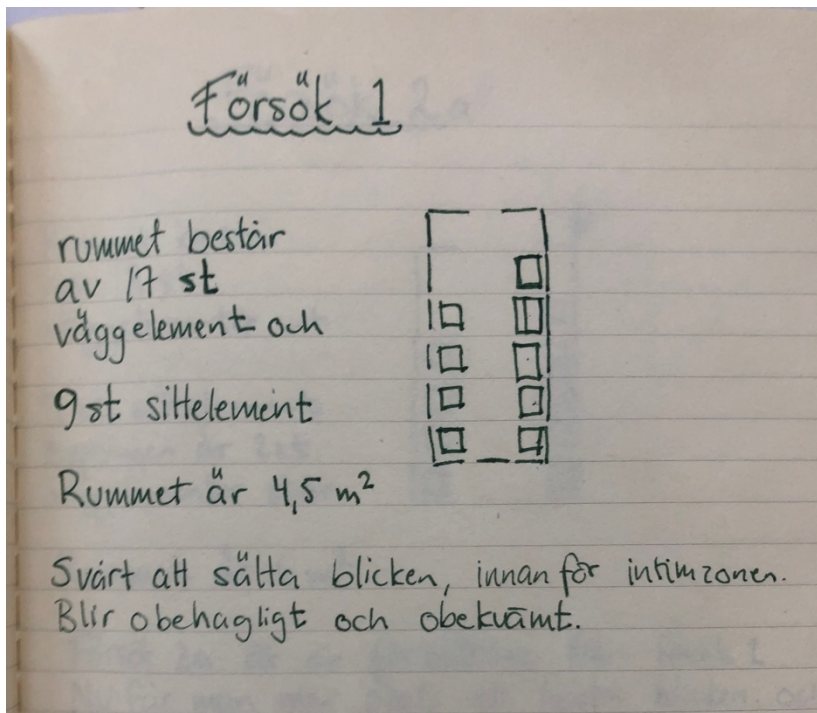 Försök 1
rummet består
av 17 st
väggelement och
9 st sittelement
Rummet är 4,5 m²
Svårt att sätta blicken, innanför intimzonen.
Blir obehagligt och obekvämt.